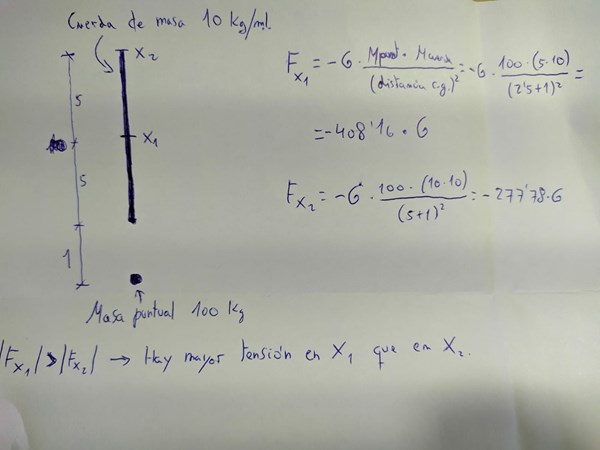 Cuerda de masa 10 Kg/ml.
X₂
5
X₁
5
1
Masa puntual 100 Kg
F_X₁ = -G · Mpunt · Mcuerda / (distancia c.g.)² = -G · 100 · (5·10) / (2'5+1)² =
= -408'16 · G
F_X₂ = -G · 100 · (10·10) / (5+1)² = -277'78·G
|F_X₁| > |F_X₂| → Hay mayor tensión en X₁ que en X₂.